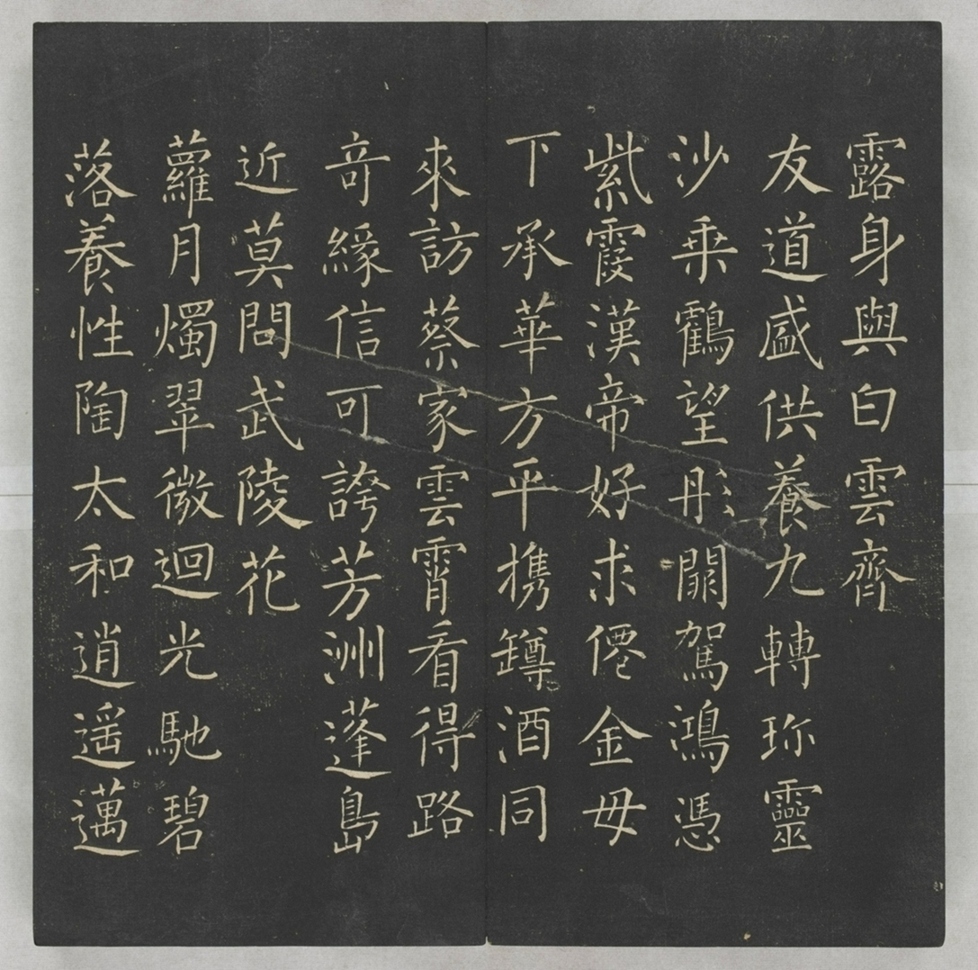 露身與白雲齊
友道盛供養九轉珎靈
沙乗鶴望彤關駕鴻憑
紫霞漢帝好求僊金母
下承華方平攜罇酒同
來訪蔡家雲霄看得路
奇緣信可誇芳洲蓬島
近莫問武陵花
蘿月燭翠微迴光馳碧
落養性陶太和逍遥邁